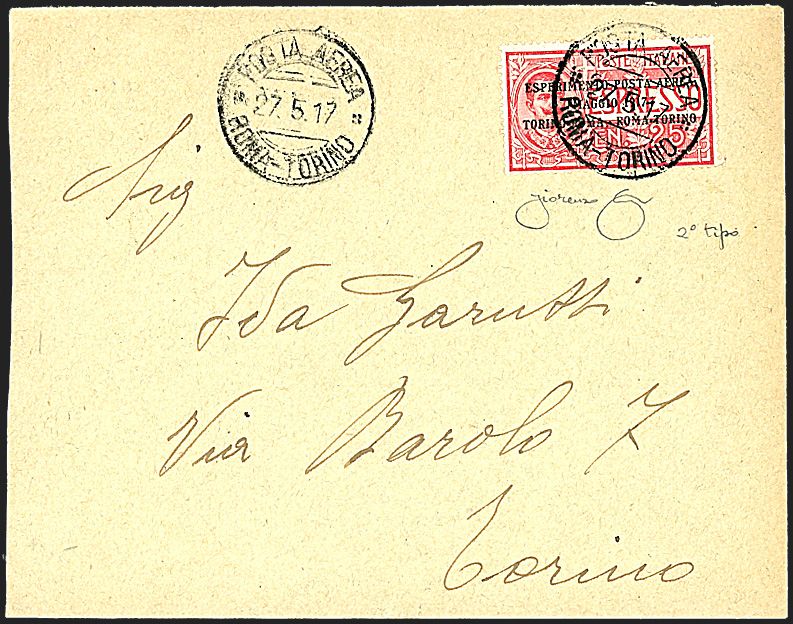 POSTA AEREA
27.5.17
ROMA-TORINO
POSTE ITALIANE
ESPERIMENTO POSTA AEREA
ESPRESSO
MAGGIO 1917
TORINO-ROMA · ROMA-TORINO
CENT. 25
POSTA AEREA
ROMA-TORINO
2° tipo
Sig
Ida Garutti
Via Barolo 7
Torino